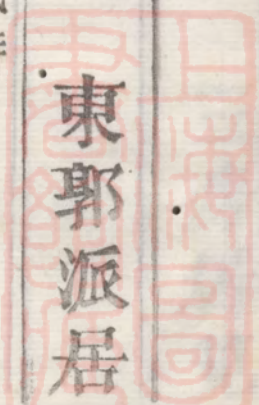 東郭派居